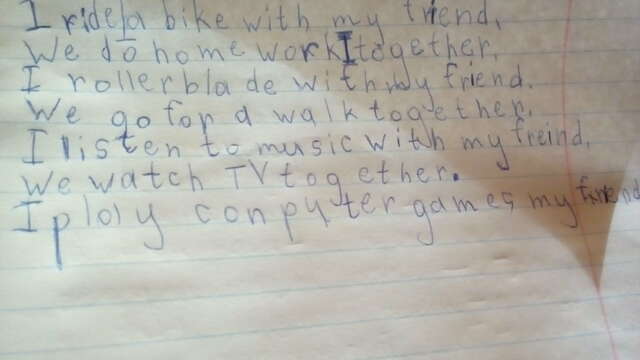 I ride a bike with my friend.
We do home work together.
I rollerblade with my friend.
We go for a walk together.
I listen to music with my freind.
We watch TV together.
I play conputer games my friend